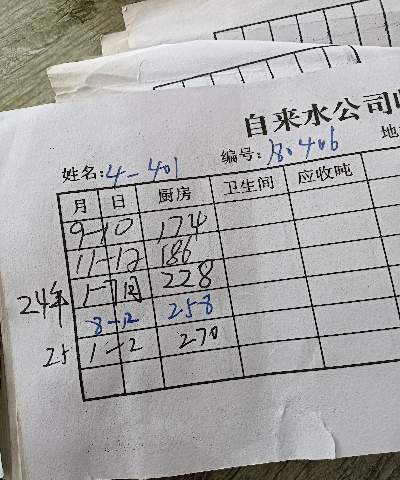 自来水公司
姓名:4-401 编号:80406 地
月 日 厨房 卫生间 应收吨
9-10 174
11-12 186
24年 1-7月 228
8-12 258
25 1-2 270